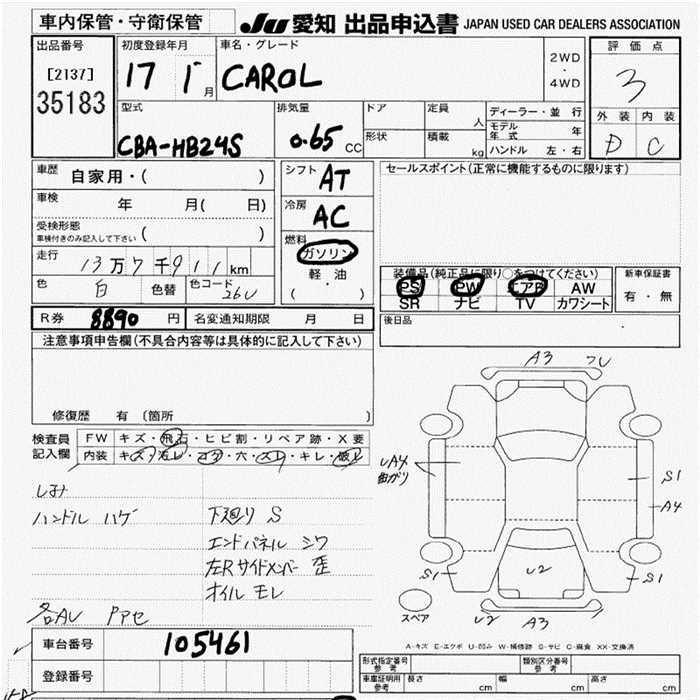 車内保管・守衛保管
JU 愛知 出品申込書 JAPAN USED CAR DEALERS ASSOCIATION
出品番号
[2137]
35183
初度登録年月
17 1月
車名・グレード
CAROL
2WD
・
4WD
評価点
3
外装 内装
D C
型式
CBA-HB24S
排気量
0.65 CC
ドア
定員 人
形状
積載 kg
ディーラー・並行
モデル年式 年
ハンドル 左・右
車歴 自家用・( )
車検 年 月( 日)
受検形態
車検付きのみ記入して下さい ( )
走行 13万7千911km
色 白 色替 色コード 26U
シフト AT
冷房 AC
燃料
ガソリン
軽・油
( ・ )
セールスポイント(正常に機能するものに限ります)
装備品(純正品に限り○をつけてください)
PS PW エアB AW
SR ナビ TV カワシート
新車保証書
有・無
R券 8890 円 名変通知期限 月 日
後日品
注意事項申告欄(不具合内容等は具体的に記入して下さい)
修復歴 有 〔箇所 〕
検査員記入欄
FW キズ・飛石・ヒビ割・リペア跡・X要
内装 キズ・汚レ・コゲ・穴・スレ・キレ・破レ
シミ
ハンドル ハゲ
下廻り S
エンドパネル シワ
左Rサイドメンバー 歪
オイル モレ
各AU Pアセ
A3
A4
曲がり
S1
A4
S1
U2
S1
U2 A3
スペア
A-キズ E-エクボ U-凹み W-補修跡 S-サビ C-腐食 XX-交換済
車台番号 105461
登録番号
形式指定番号 参考
類別区分番号 参考
車庫証明用 参考 長さ cm 幅 cm 高さ cm